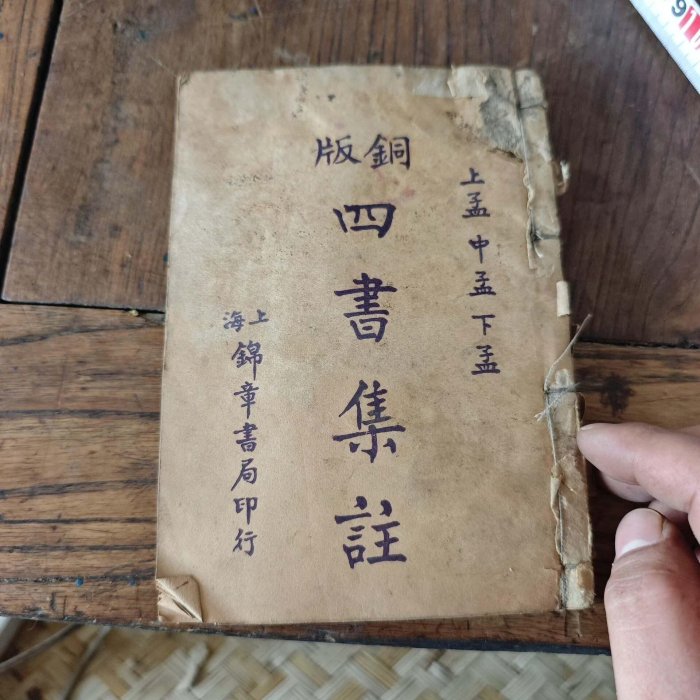 上孟 中孟 下孟
銅版
四書集註
上海
錦章書局印行
9